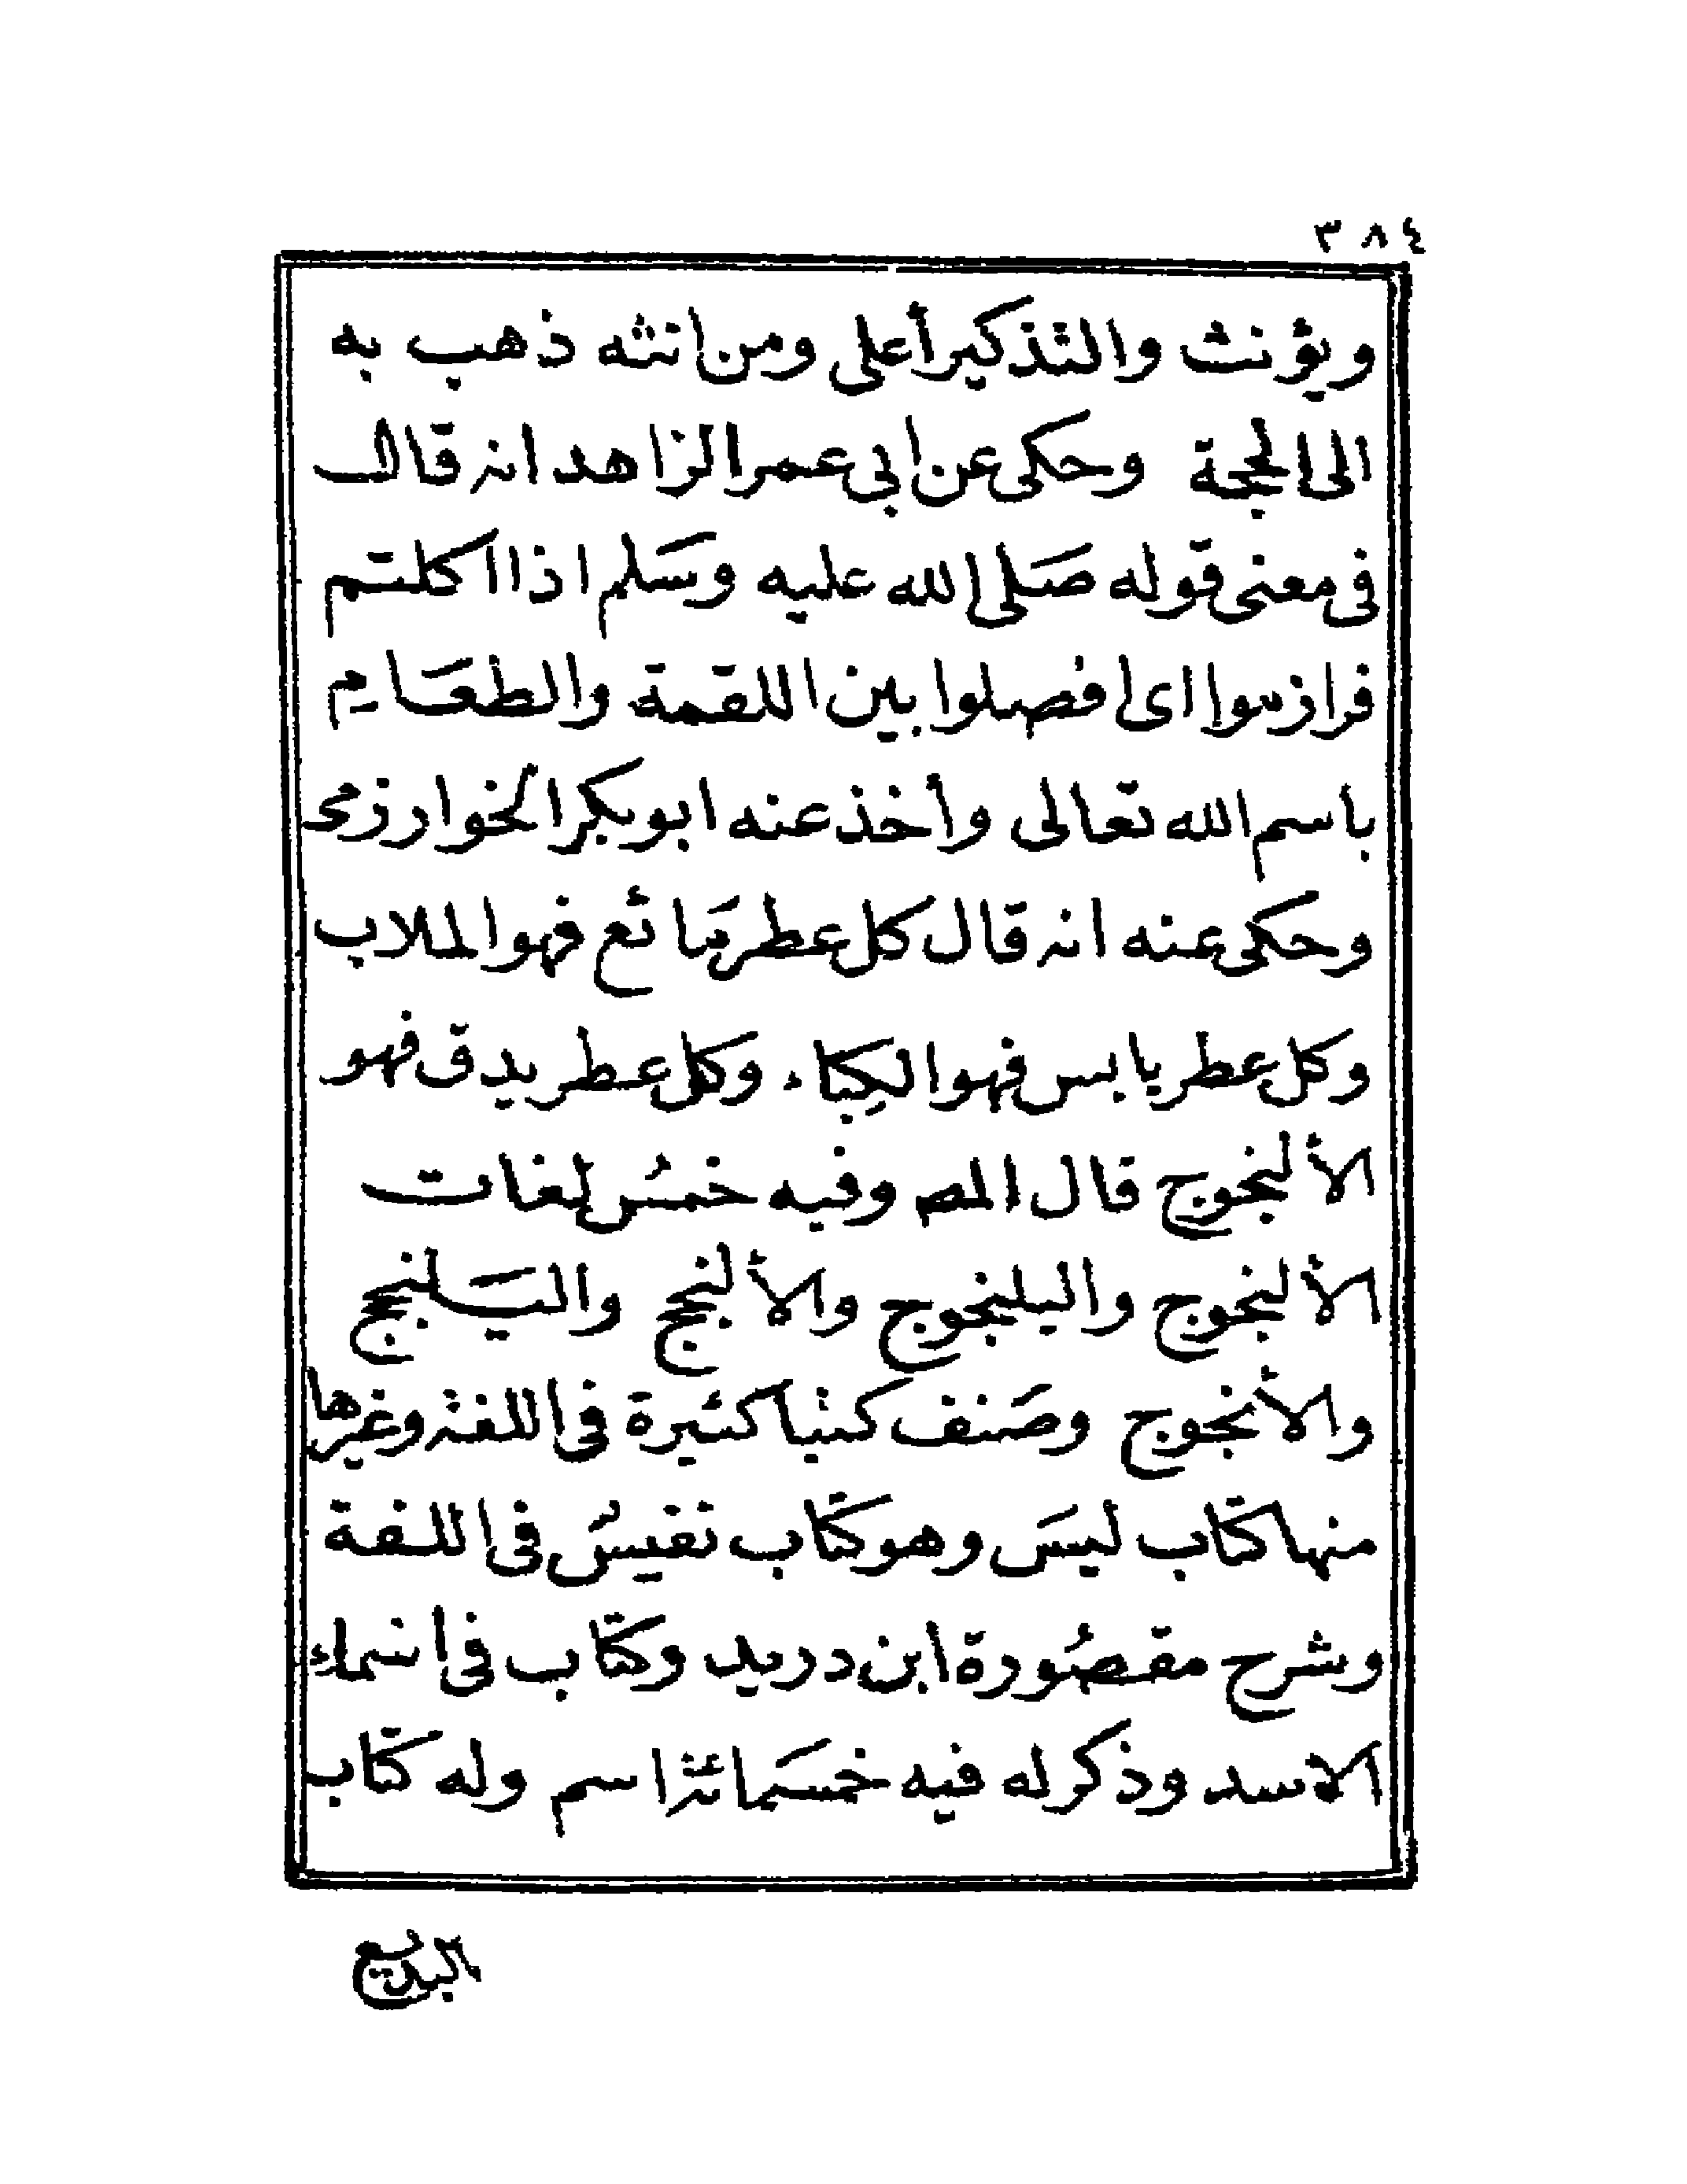 ٣٨٤
ويؤنث والتذكير أعلى ومن انثه ذهب به
الى الحجة وحكى عن ابي عمر الزاهد انه قال
فى معنى قوله صَلى الله عليه وسَلم اذا اكلتم
فرازموا اى افصلوا بين اللقمة والطعَام
باسم الله تعالى وأخذ عنه ابو بكر الخوارزمى
وحكى عنه انه قال كل عطر مَائع فهو الملاب
وكل عطر يابس فهو الكِباء وكل عطر يدق فهو
الألنجوج قال المص وفيه خمسُ لغات
الألنجوج واليلنجوج والألنجج واليَلنجج
والأنجوج وصَنف كتبا كثيرة فى اللغة وغيرها
منها كتاب ليسَ وهو كتاب نفيسُ فى اللغة
وشرح مقصُورة ابن دريد وكتاب فى اسماء
الاسد وذكر له فيه خمسَمائة اسم وله كتاب
البديع